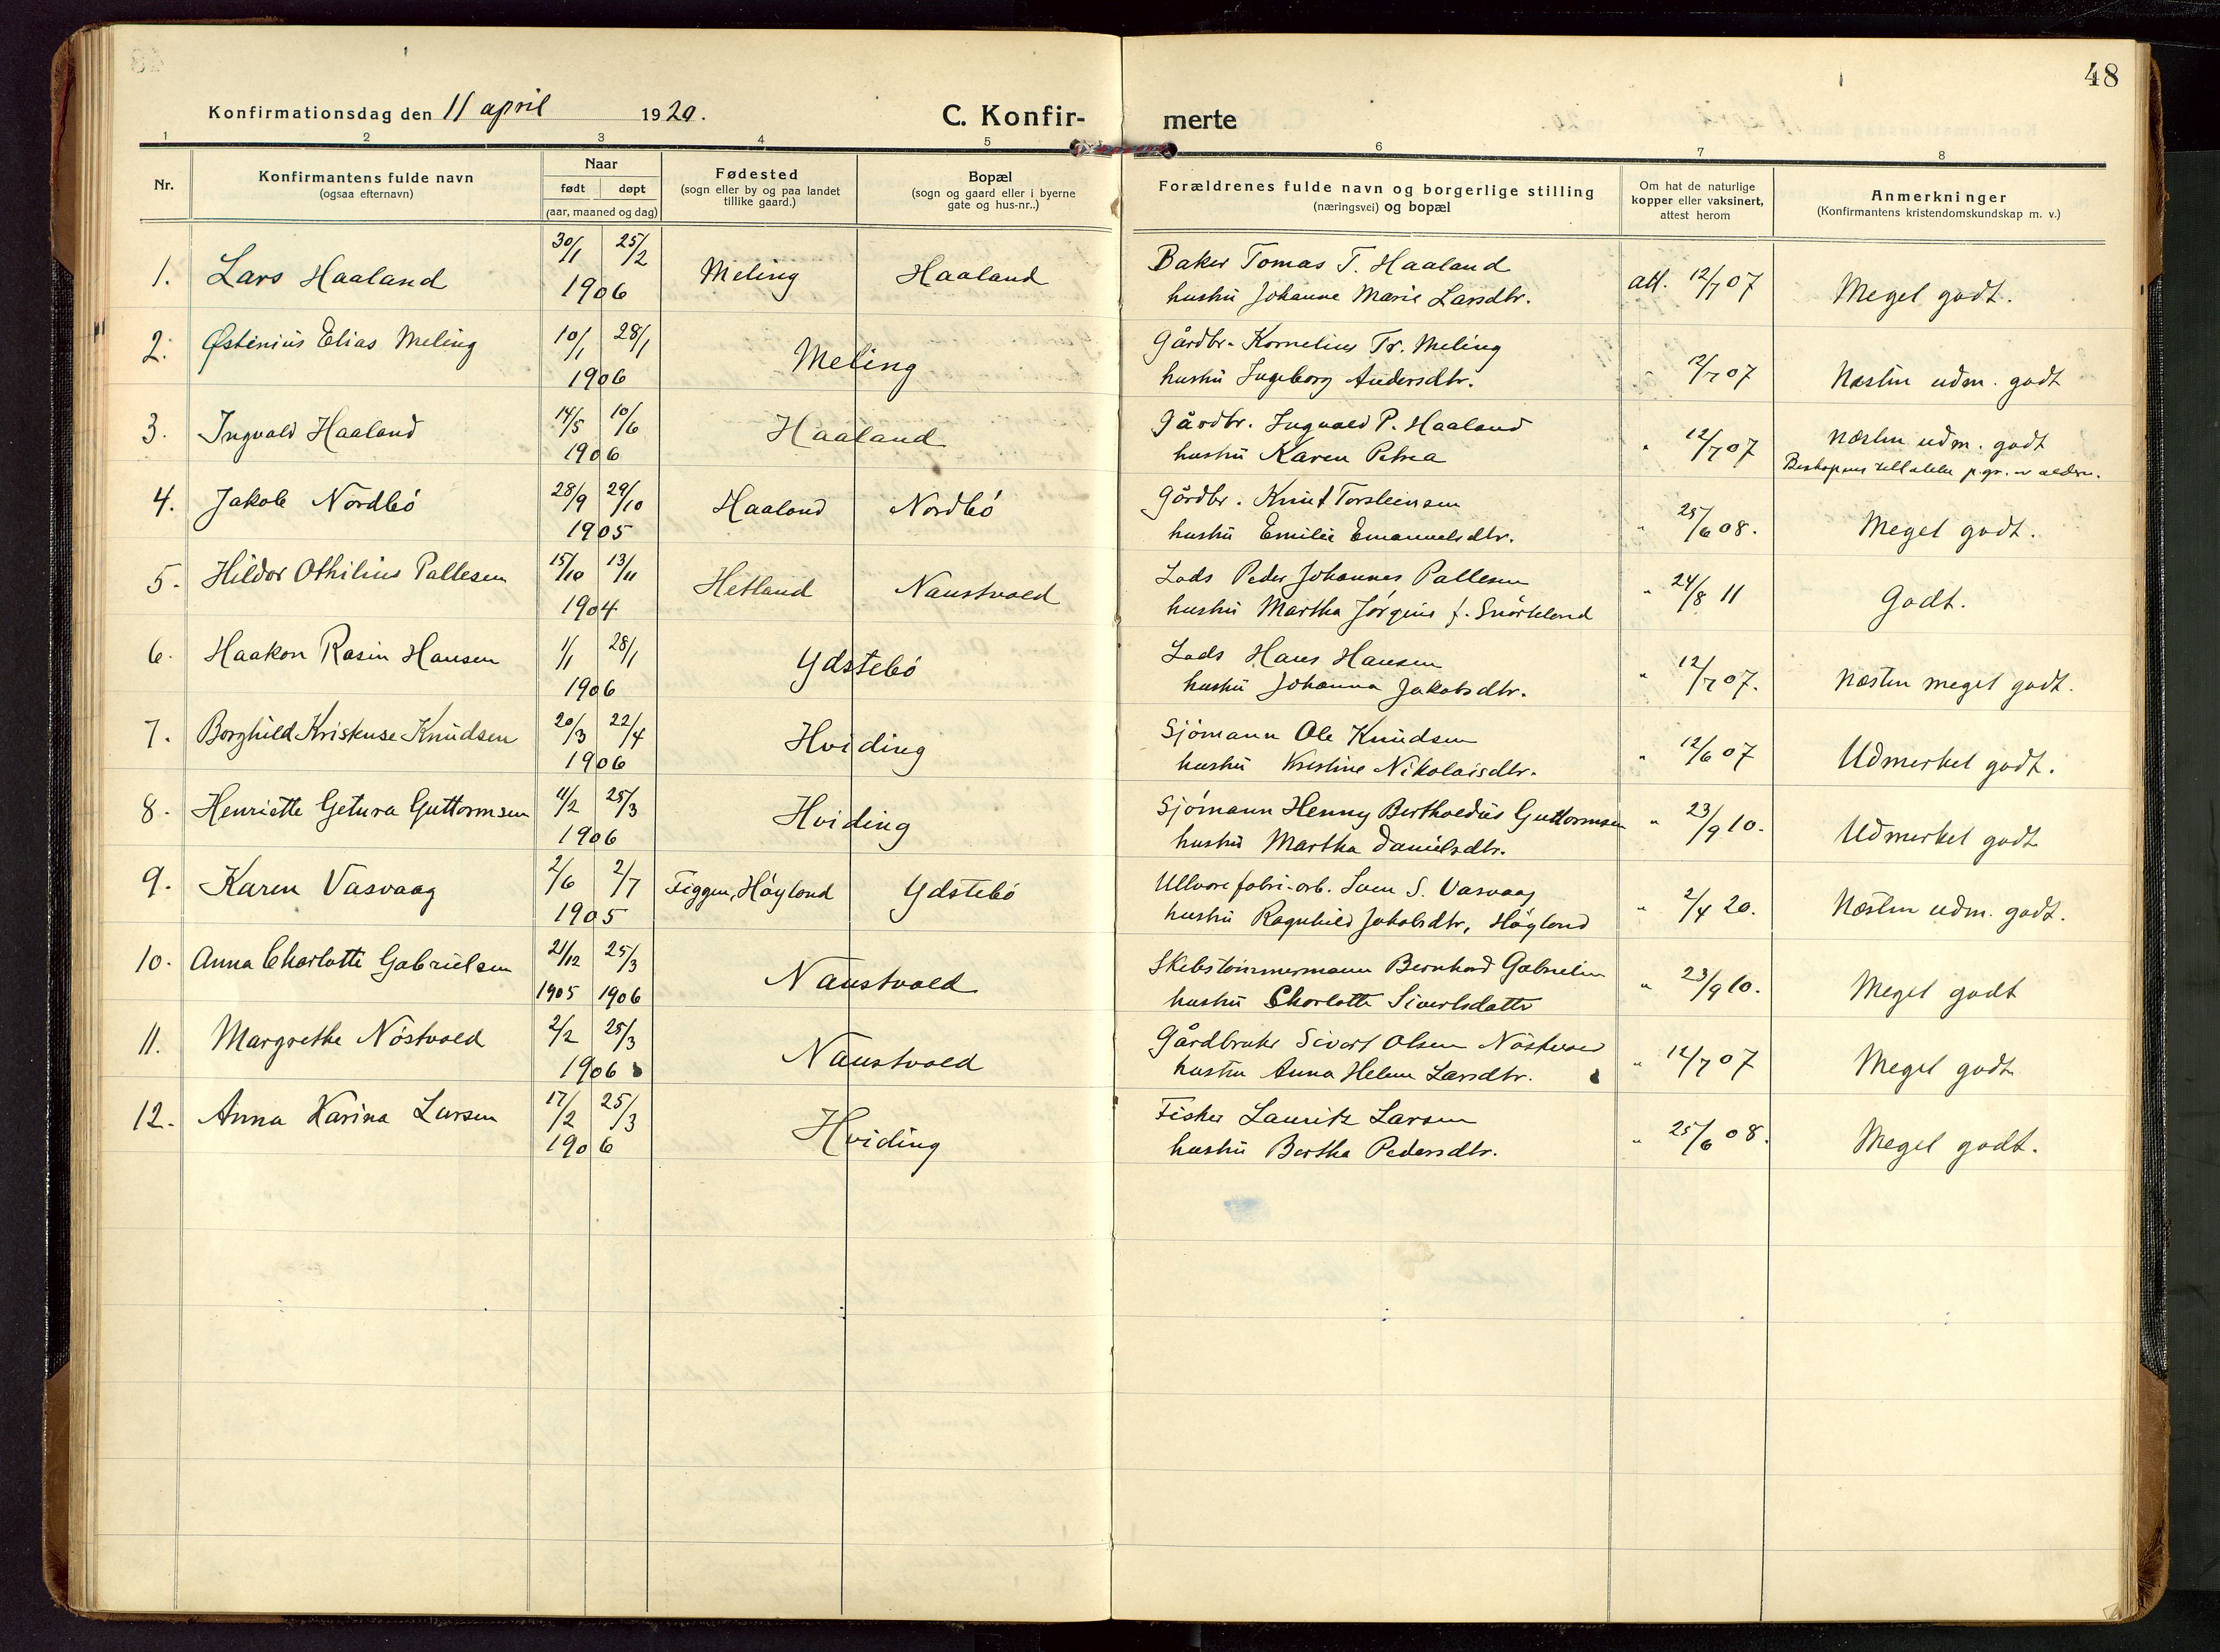 48
Konfirmationsdag den 11 april 1920.
C. Konfir-
merte
1 2 3 4 5 6 7 8
Nr.
Konfirmantens fulde navn
(ogsaa efternavn)
Naar
født døpt
(aar, maaned og dag)
Fødested
(sogn eller by og paa landet
tillike gaard.)
Bopæl
(sogn og gaard eller i byerne
gate og hus-nr..)
Forældrenes fulde navn og borgerlige stilling
(næringsvei) og bopæl
Om hat de naturlige
kopper eller vaksinert,
attest herom
Anmerkninger
(Konfirmantens kristendomskundskap m. v.)
1. Lars Haaland 30/1 25/2 1906 Meling Haaland
Baker Tomas T. Haaland
hustru Johanne Marie Larsdtr.
att. 12/7 07 Meget godt.
2. Østenius Elias Meling 10/1 28/1 1906 Meling
Gårdbr. Kornelius Tr. Meling
hustru Ingeborg Andersdtr.
" 12/7 07 Næsten udm. godt
3. Ingvald Haaland 14/5 10/6 1906 Haaland
Gårdbr. Ingvald P. Haaland
hustru Karen Petrea
" 12/7 07 Næsten udm. godt
Biskopens tillatelse p.gr. av alder.
4. Jakob Nordbó 28/9 29/10 1905 Haaland Nordbó
Gårdbr. Knut Torsteinsen
hustru Emilie Emanuelsdtr.
" 25/6 08. Meget godt.
5. Hildor Othilius Pallesen 15/10 13/11 1904 Hetland Naustvold
Lods Peder Johannes Pallesen
hustru Martha Jörgine f.
" 24/8 11 Godt.
6. Haakon Rasin Hansen 1/1 28/1 1906 Ydstebó
Lods Hans Hansen
hustru Johanna Jakobsdtr.
" 12/7 07. Næsten meget godt.
7. Borghild Kristense Knudsen 20/3 22/4 1906 Hviding
Sjómann Ole Knudsen
hustru Kristine Nikolaisdtr.
" 12/6 07 Udmerket godt.
8. Henriette Getura Guttormsen 11/2 25/3 1906 Hviding
Sjómann Henny Bertholdus Guttormsen
hustru Martha Danielsdtr.
" 23/9 10. Udmerket godt
9. Karen Vasvaag 2/6 2/7 1905 Figgen, Höyland Ydstebó
Ullvarefabr.-arb. S. Vasvaag
hustru Ragnhild Jakobsdtr, Höyland
" 2/4 20. Næsten udm. godt.
10. Anna Charlotte Gabrielsen 21/12 1905 25/3 1906 Naustvold
Skibstömmermann Bernhard Gabrielsen
hustru Charlotte Sivertsdatter
" 23/9 10. Meget godt
11. Margrethe Nöstvold 2/2 25/3 1906 Naustvold
Gårdbruker Sivert Olsen Nöstvold
hustru Anna Helene Larsdtr.
" 12/7 07 Meget godt
12. Anna Karina Larsen 17/2 25/3 1906 Hviding
Fisker Lauritz Larsen
hustru Bertha Pedersdtr.
" 25/6 08. Meget godt.